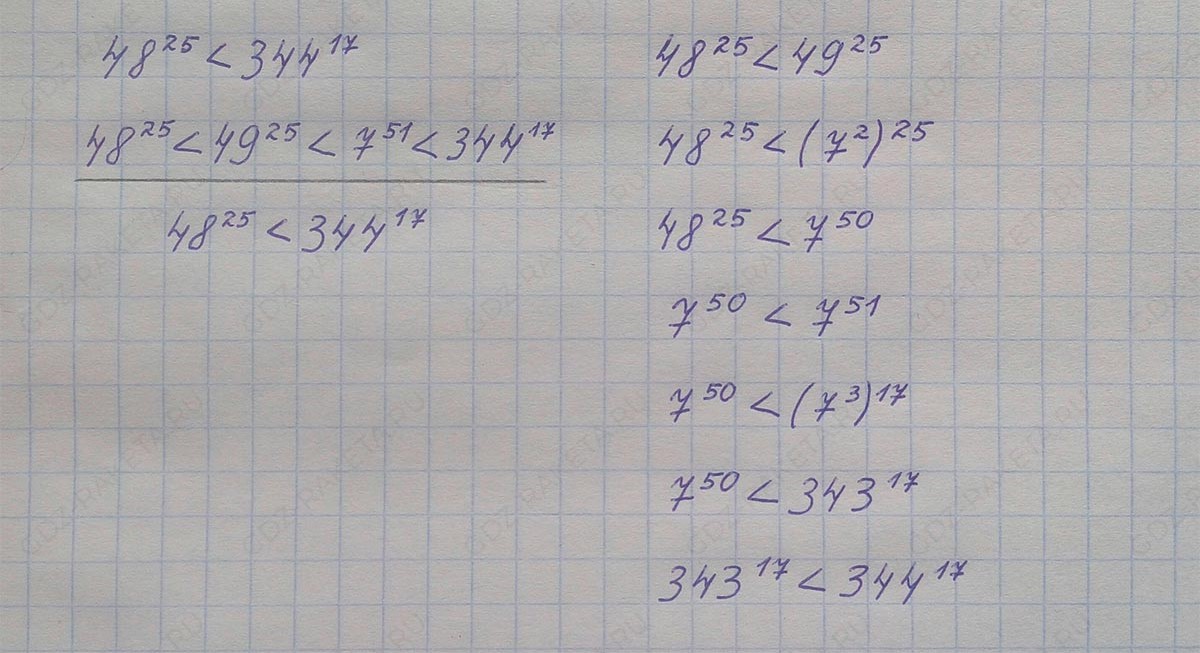 48²⁵ < 344¹⁷
48²⁵ < 49²⁵ < 7⁵¹ < 344¹⁷
48²⁵ < 344¹⁷
48²⁵ < 49²⁵
48²⁵ < (7²)²⁵
48²⁵ < 7⁵⁰
7⁵⁰ < 7⁵¹
7⁵⁰ < (7³)¹⁷
7⁵⁰ < 343¹⁷
343¹⁷ < 344¹⁷
GDZ-RAKETA.RU